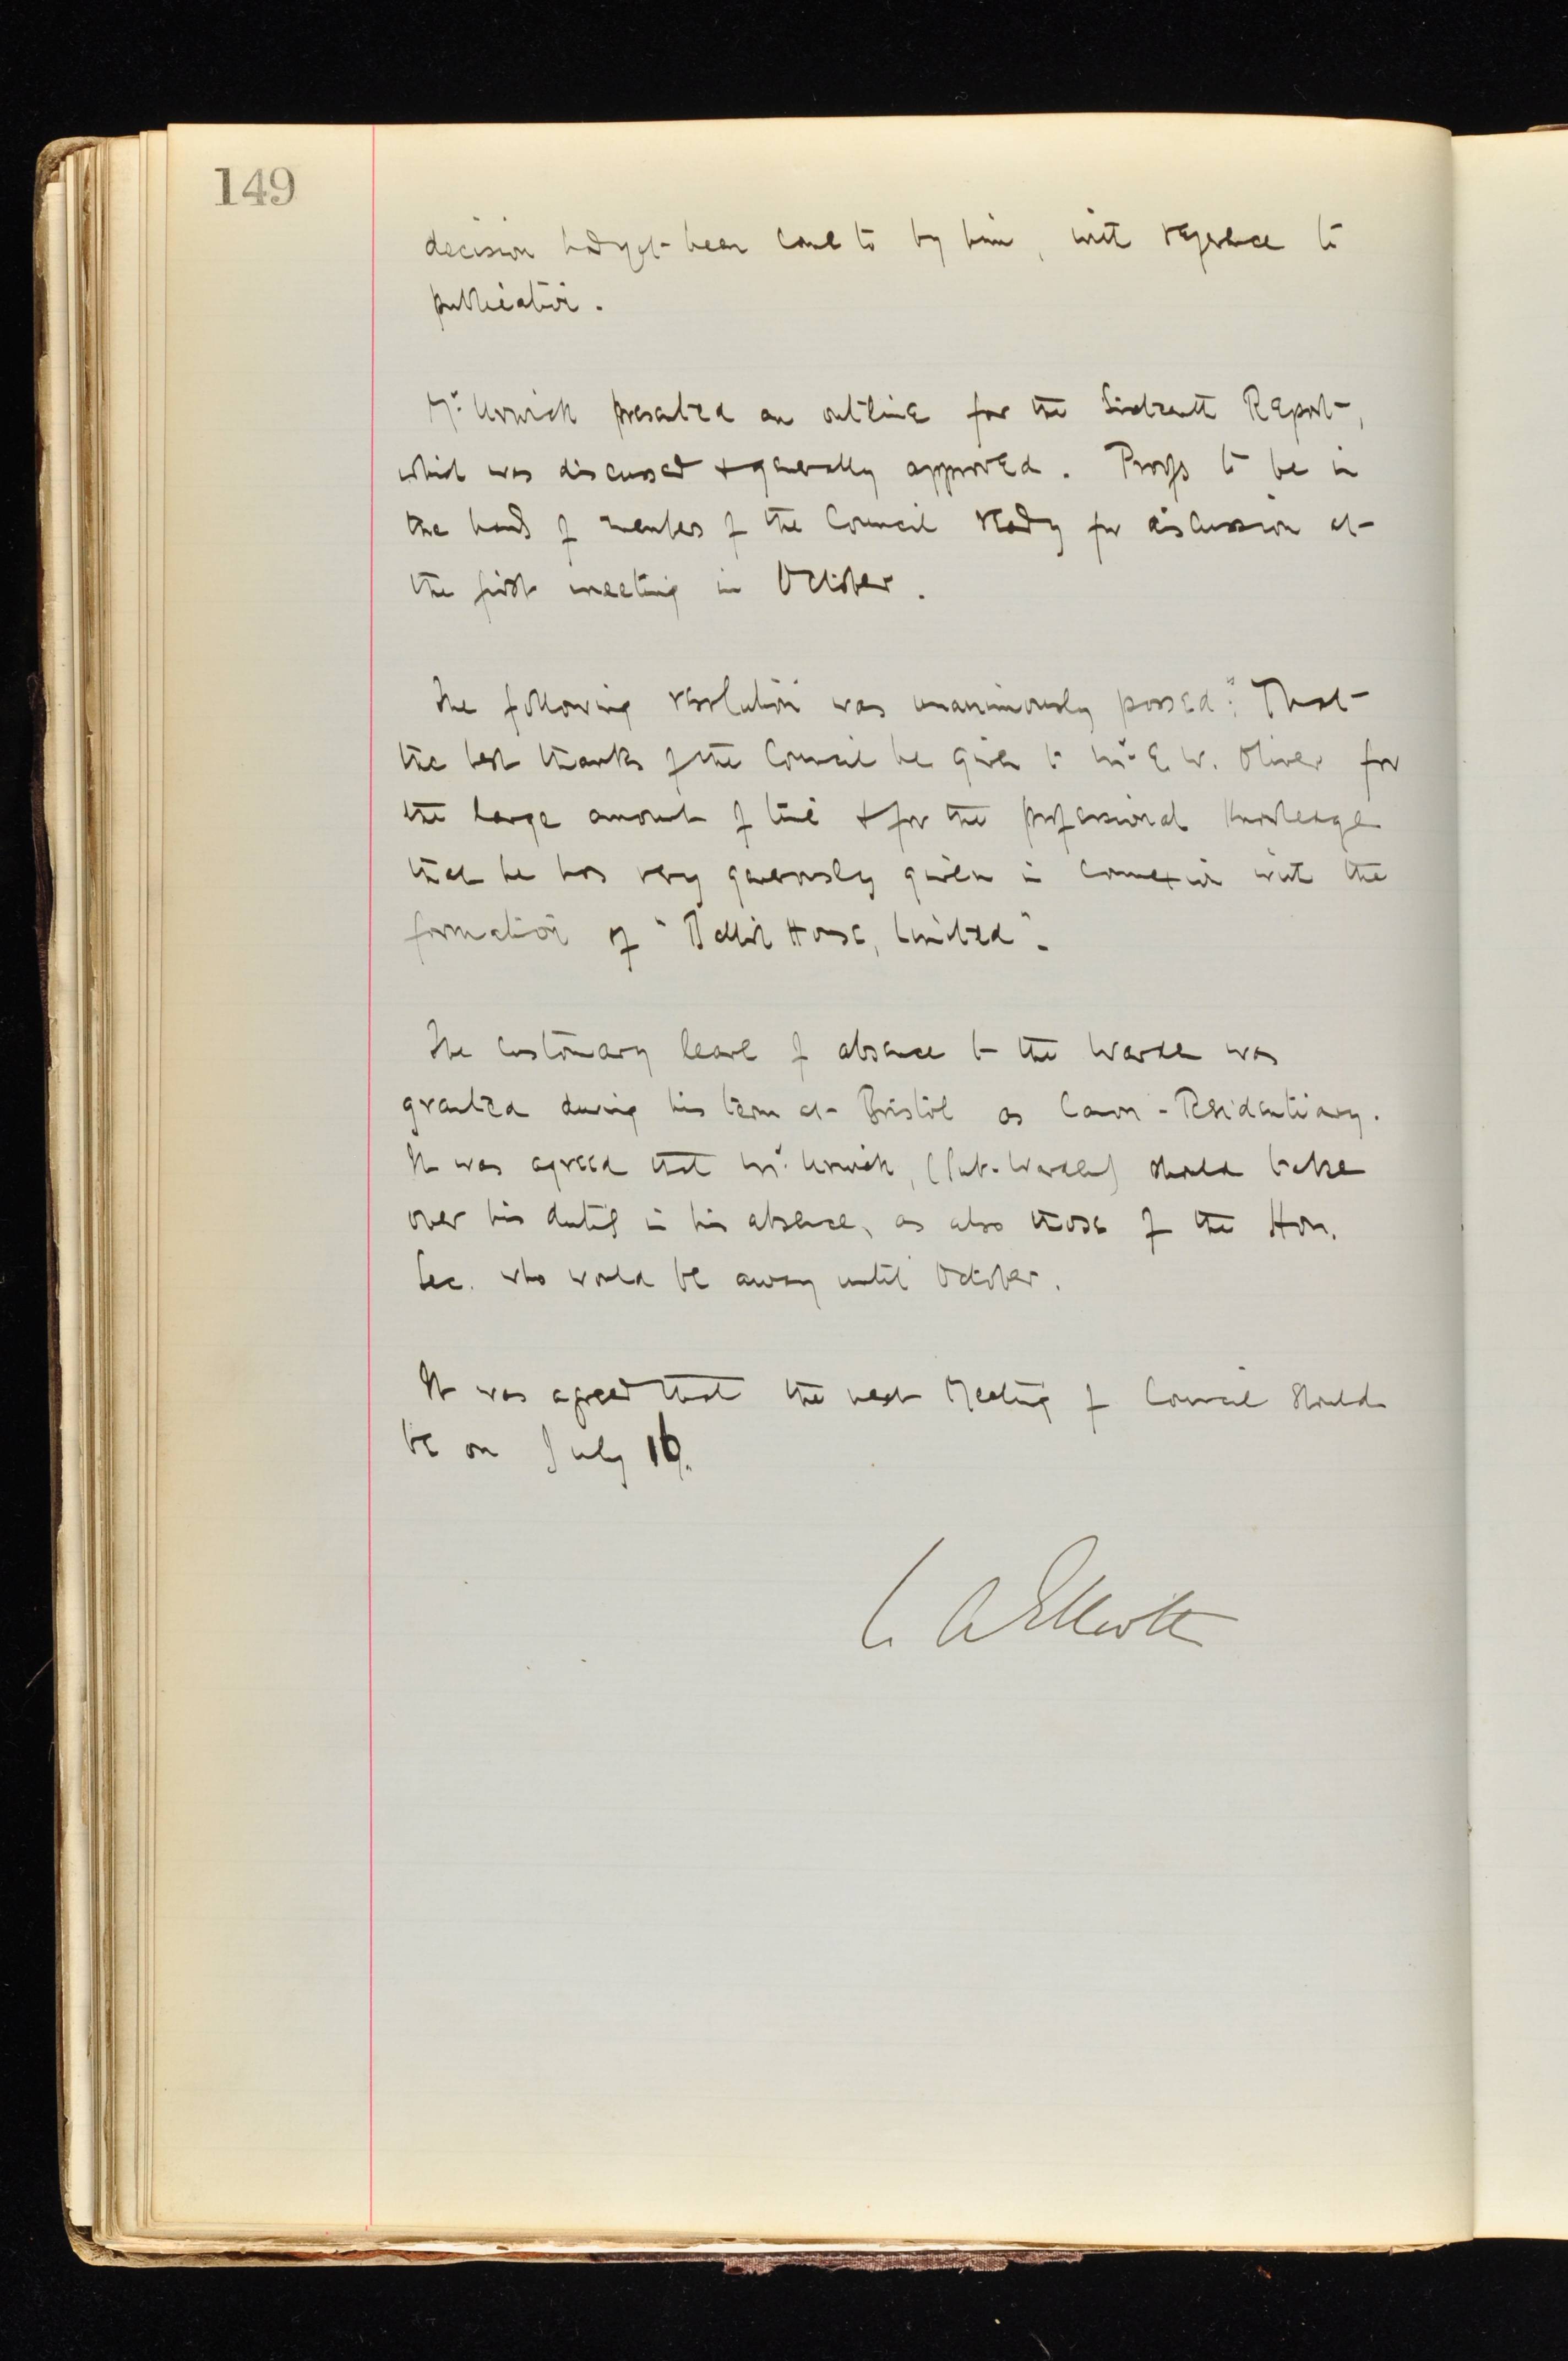 149
decision had yet been come to by him, with reference to
publication.
Mr. Urwick presented an outline for the Sixteenth Report,
which was discussed & generally approved. Proofs to be in
the hands of members of the Council ready for discussion at
the first meeting in October.
The following resolution was unanimously passed: "That
the best thanks of the Council be given to Mr. E. W. Oliver for
the large amount of time & for the professional knowledge
that he has very generously given in connexion with the
formation of " House, Limited".
The customary leave of absence to the Warden was
granted during his term at Bristol as Canon-Residentiary.
It was agreed that Mr. Urwick, (Sub-Warden) should take
over his duties in his absence, as also those of the Hon.
Sec. who would be away until October.
It was agreed that the next Meeting of Council should
be on July 16.
C. A. Elliott